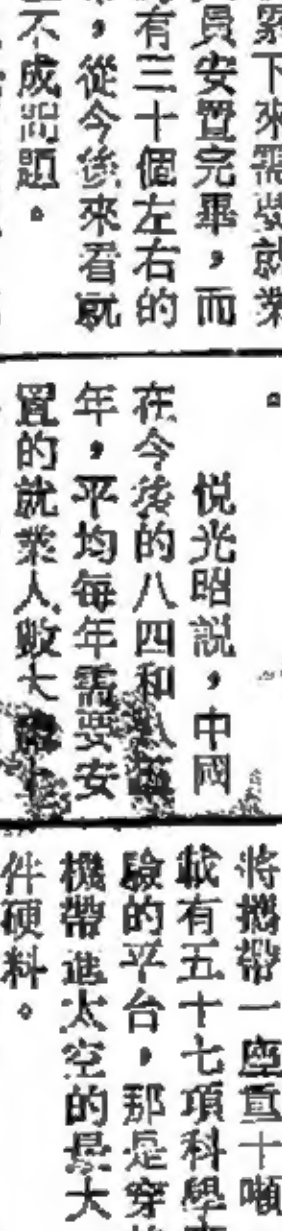 下來需要就業
員安置完畢，而
有三十個左右的
，從今後來看就
不成問題。
。
悅光昭説，中國
在今後的八四和
年，平均每年需要安
置的就業人數大
將攜帶一座重十噸
載有五十七項科學
驗的平台，那是穿
機帶進太空的最大
件硬料。